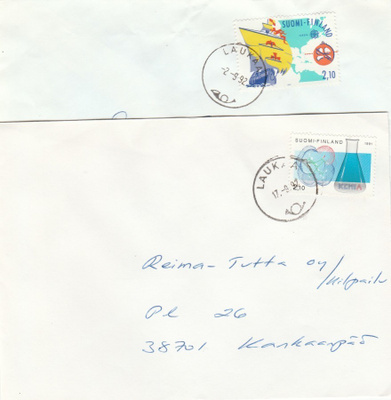 SUOMI-FINLAND
2,10
LAUKAA
-2.-9.92
SUOMI-FINLAND
1991
KEMIA
2,10
LAUKAA
17.-9.92
Reima-Tutta oy/
/kilpailu
PL 26
38701 Kankaanpää